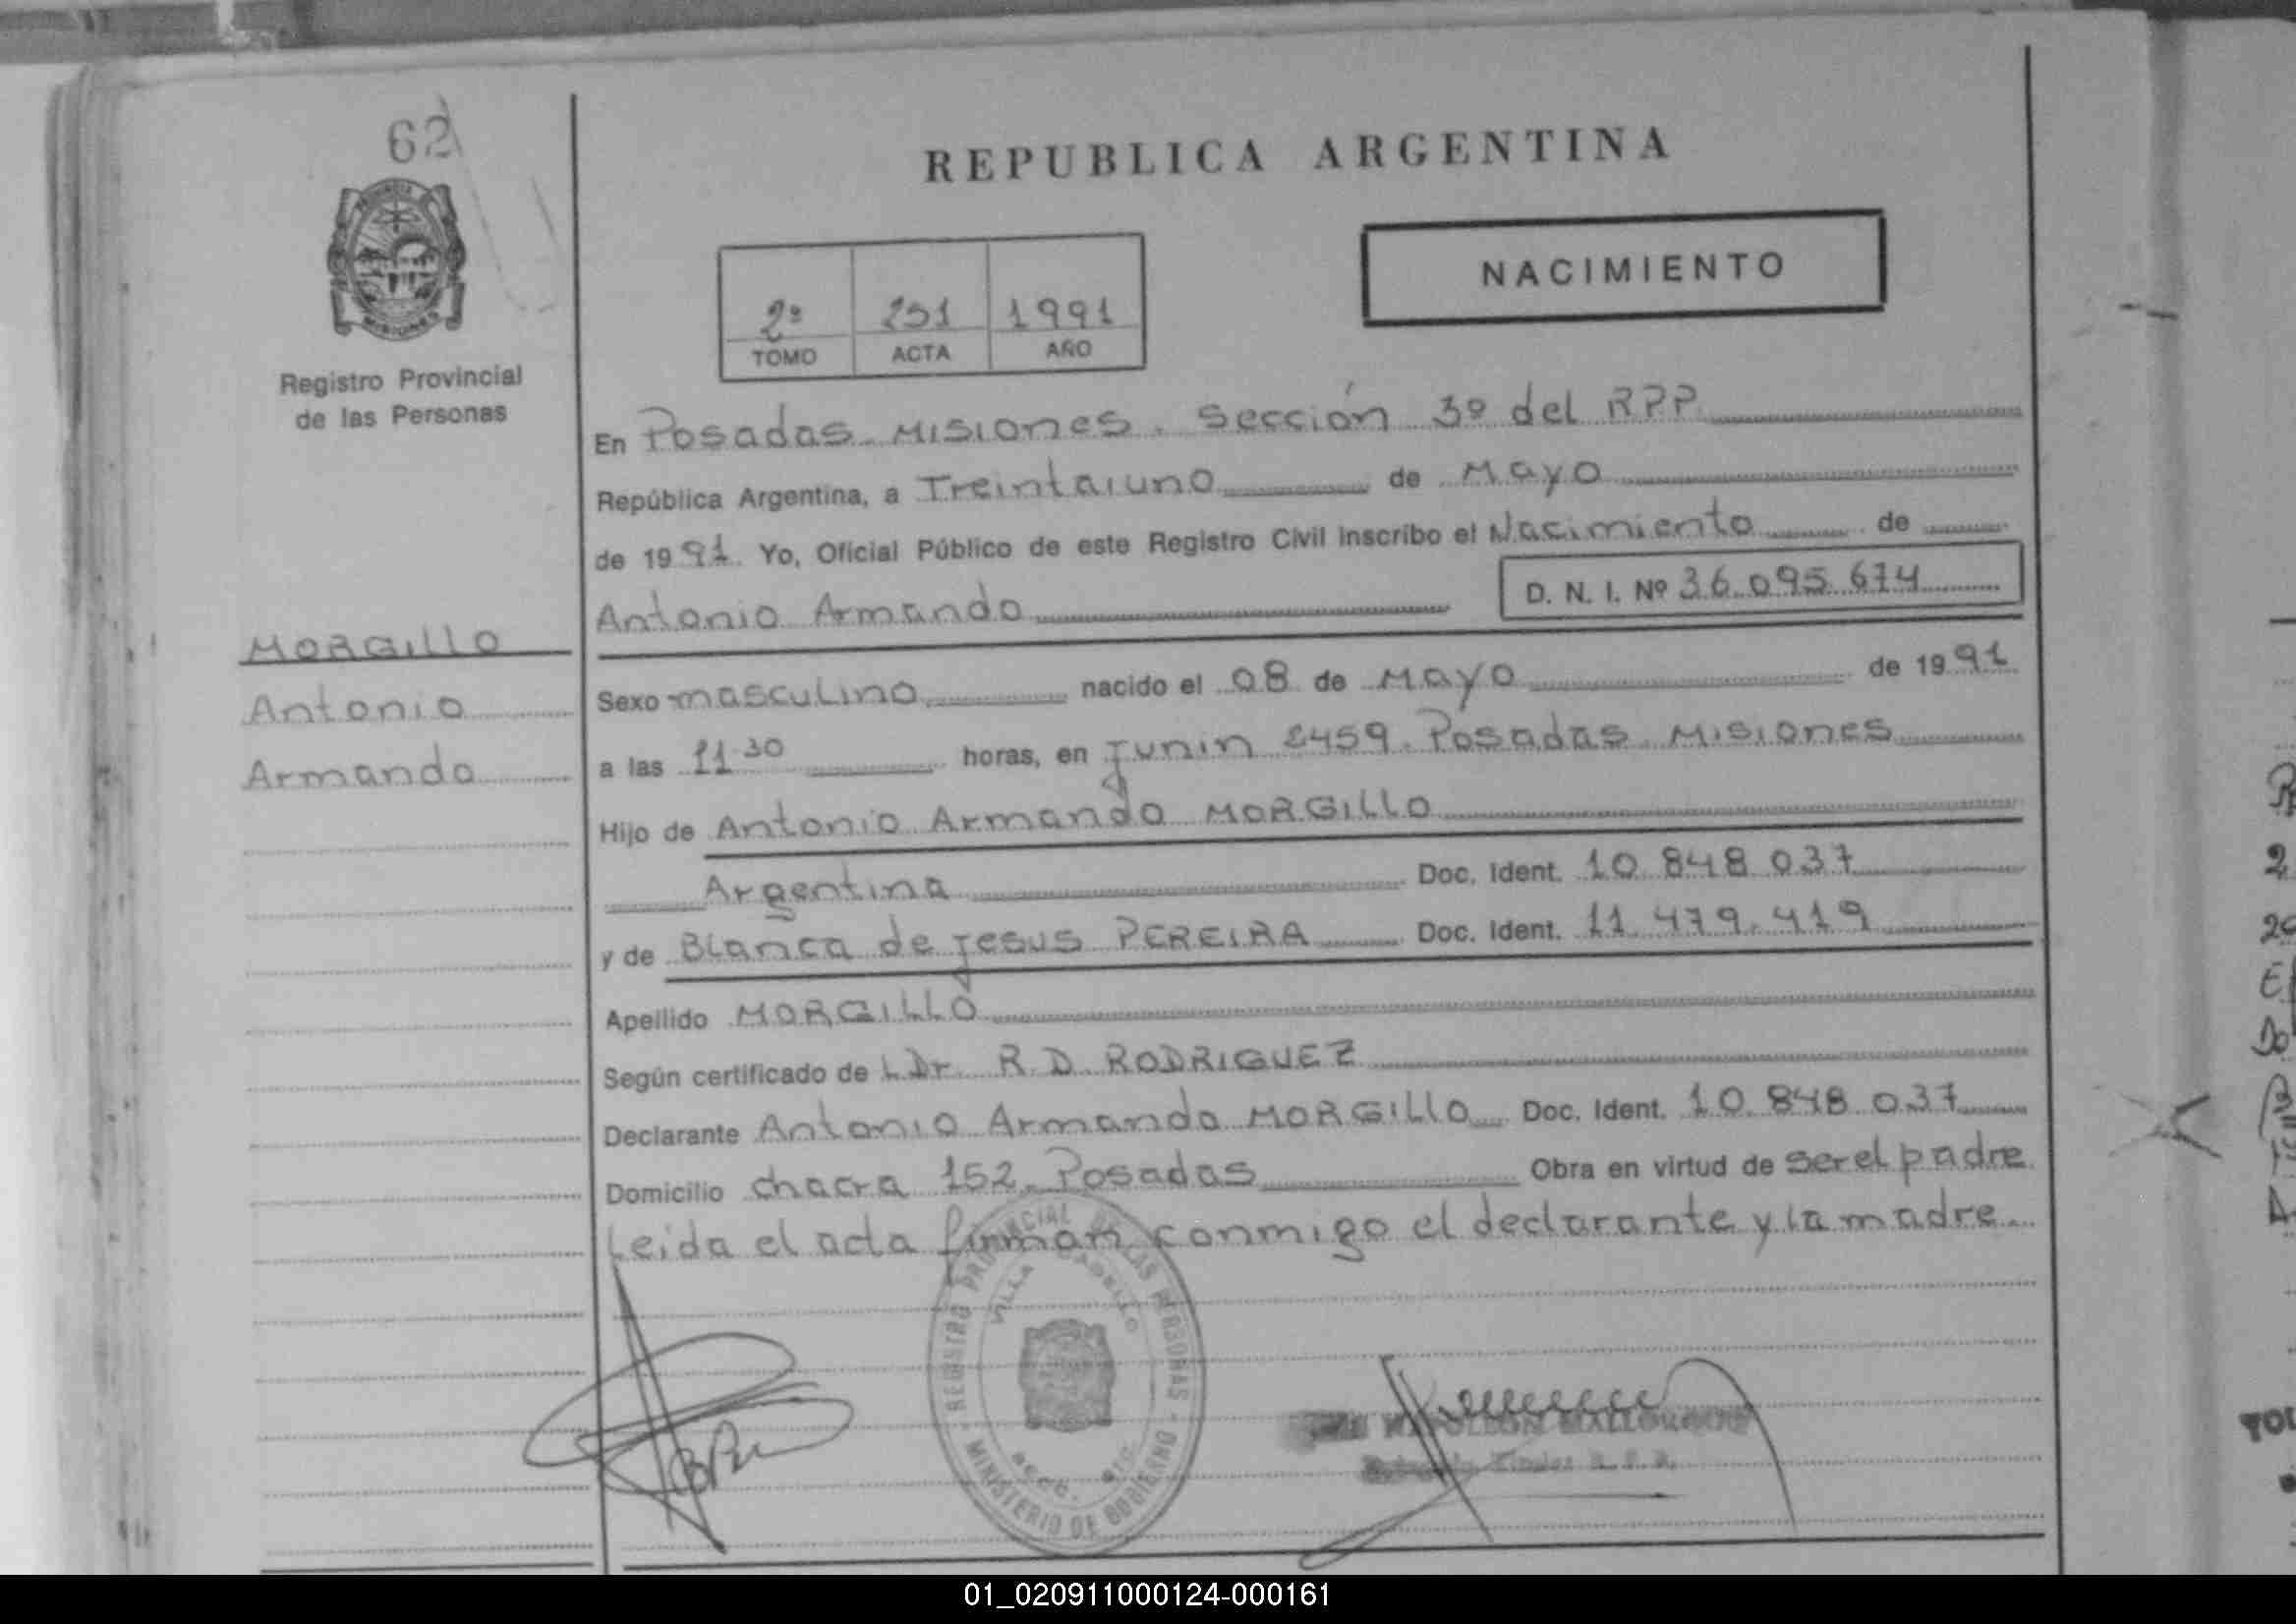 62
REPUBLICA ARGENTINA
NACIMIENTO
2º 251 1991
TOMO ACTA AÑO
MISIONES
Registro Provincial
de las Personas
En Posadas Misiones. Sección 3º del RPP
República Argentina, a Treintaiuno de Mayo
de 1991. Yo, Oficial Público de este Registro Civil inscribo el Nacimiento de
Antonio Armando
D. N. I. Nº 36.095.674
MORGILLO
Antonio
Armando
Sexo masculino nacido el 08 de Mayo de 1991
a las 11 30 horas, en Junin 2459. Posadas Misiones
Hijo de Antonio Armando MORGILLO
Argentina Doc. Ident. 10.848.037
y de Blanca de Jesus PEREIRA Doc. Ident. 11.479.419
Apellido MORGILLO
Según certificado de LDr. R.D. RODRIGUEZ
Declarante Antonio Armando MORGILLO Doc. Ident. 10.848.037
Domicilio chacra 152. Posadas Obra en virtud de ser el padre
Leida el acta firman conmigo el declarante y la madre.
REGISTRO PROVINCIAL DE LAS PERSONAS
MINISTERIO DE GOBIERNO
VILLA
NAPOLEON
01_020911000124-000161